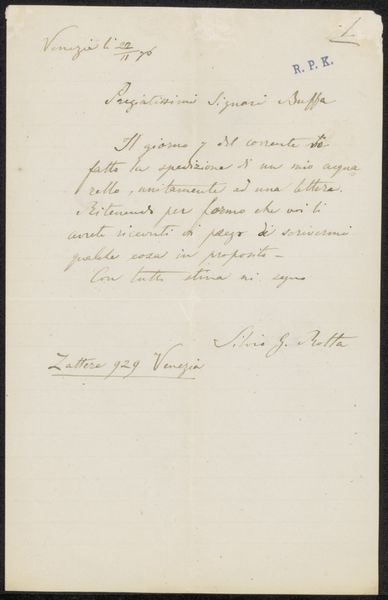 L
Venezia li 22/11 76
R. P. K.
Pregiatissimi Signori Buffa
Il giorno 7 del corrente
fatto la spedizione di un mio acqua
rello, unitamente ad una lettera.
Ritenendo per fermo che voi li
avrete ricevuti vi prego di scrivermi
qualche cosa in proposito –
Con tutta stima mi segno
Silvio G. Rotta
Zattere 929 Venezia